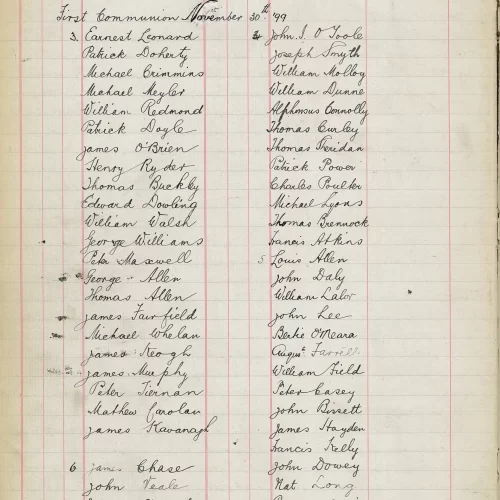 First Communion November 30th '99
3. Earnest Leonard
Patrick Doherty
Michael Crimmins
Michael Meyler
William Redmond
Patrick Doyle
James O'Brien
Henry Ryder
Thomas Buckley
Edward Dowling
William Walsh
George Williams
Peter Maxwell
George - Allen
Thomas Allen
James Fairfield
Michael Whelan
James Keogh
James Murphy
Peter Tiernan
Mathew Carolan
James Kavanagh
6. James Chase
John Veale
John J. O'Toole
Joseph Smyth
William Molloy
William Dunne
Alphonsus Connolly
Thomas Curley
Thomas Sheridan
Patrick Power
Charles Poulter
Michael Lyons
Thomas Brennock
Francis Atkins
5 Louis Allen
John Daly
William Lalor
John Lee
Bertie O'Meara
Augst Farrell
William Field
Peter Casey
John Bissett
James Hayden
Francis Kelly
John Dowey
Nat. Long